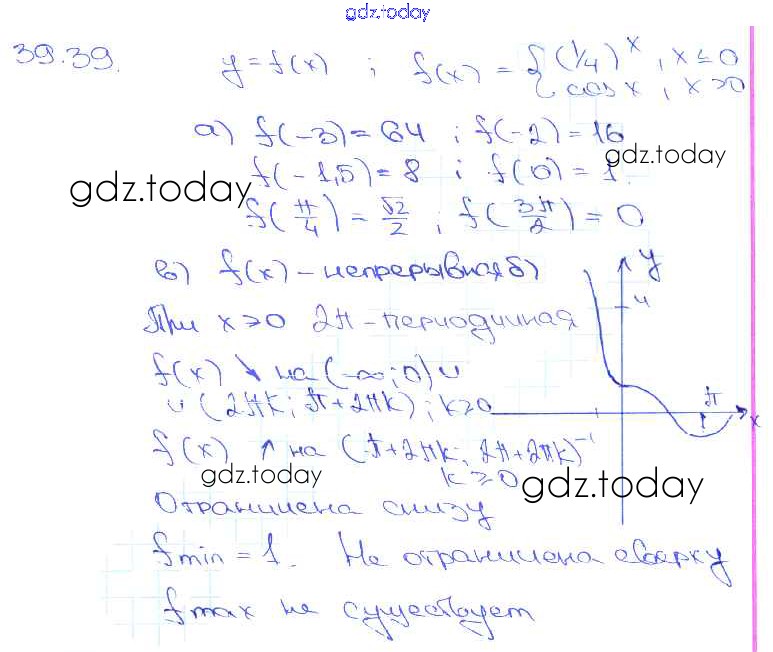 gdz.today
39.39. y = f(x) ; f(x) = { (1/4)^x , x ≤ 0
cos x , x > 0
а) f(-3) = 64 ; f(-2) = 16
gdz.today
f(-1,5) = 8 ; f(0) = 1.
gdz.today
f(π/4) = √2/2 ; f(3π/2) = 0
в) f(x) – непрерывная б) y
4
При x > 0 2π – периодичная
f(x) ↘ на (-∞; 0) ∪
∪ (2πk; π+2πk) ; k ≥ 0 π x
f(x) ↑ на (π+2πk; 2π+2πk)
k ≥ 0
gdz.today
gdz.today
Ограничена снизу
fmin = 1. Не ограничена сверху
fmax не существует